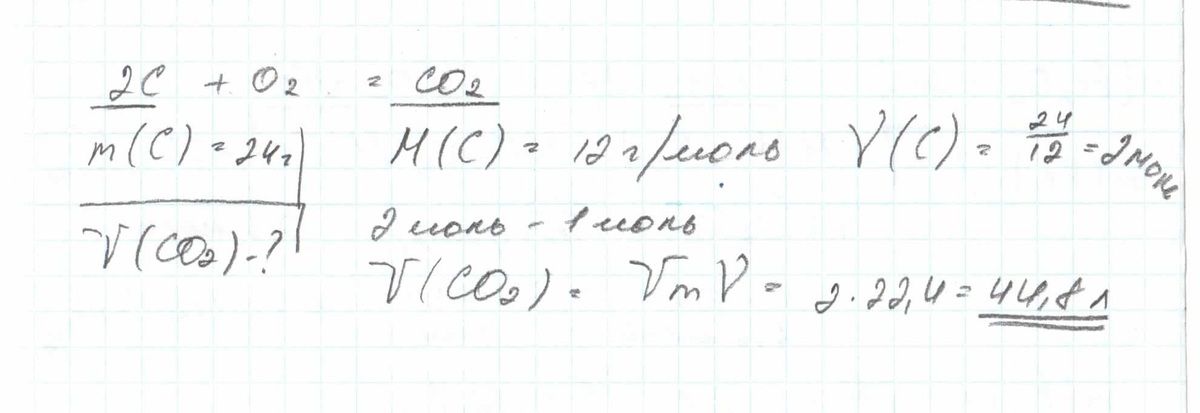 2C + O₂ = CO₂
m(C) = 24г M(C) = 12 г/моль ν(C) = 24/12 = 2 моль
V(CO₂) - ? 2 моль - 1 моль
V(CO₂) = Vm ν = 2 · 22,4 = 44,8 л